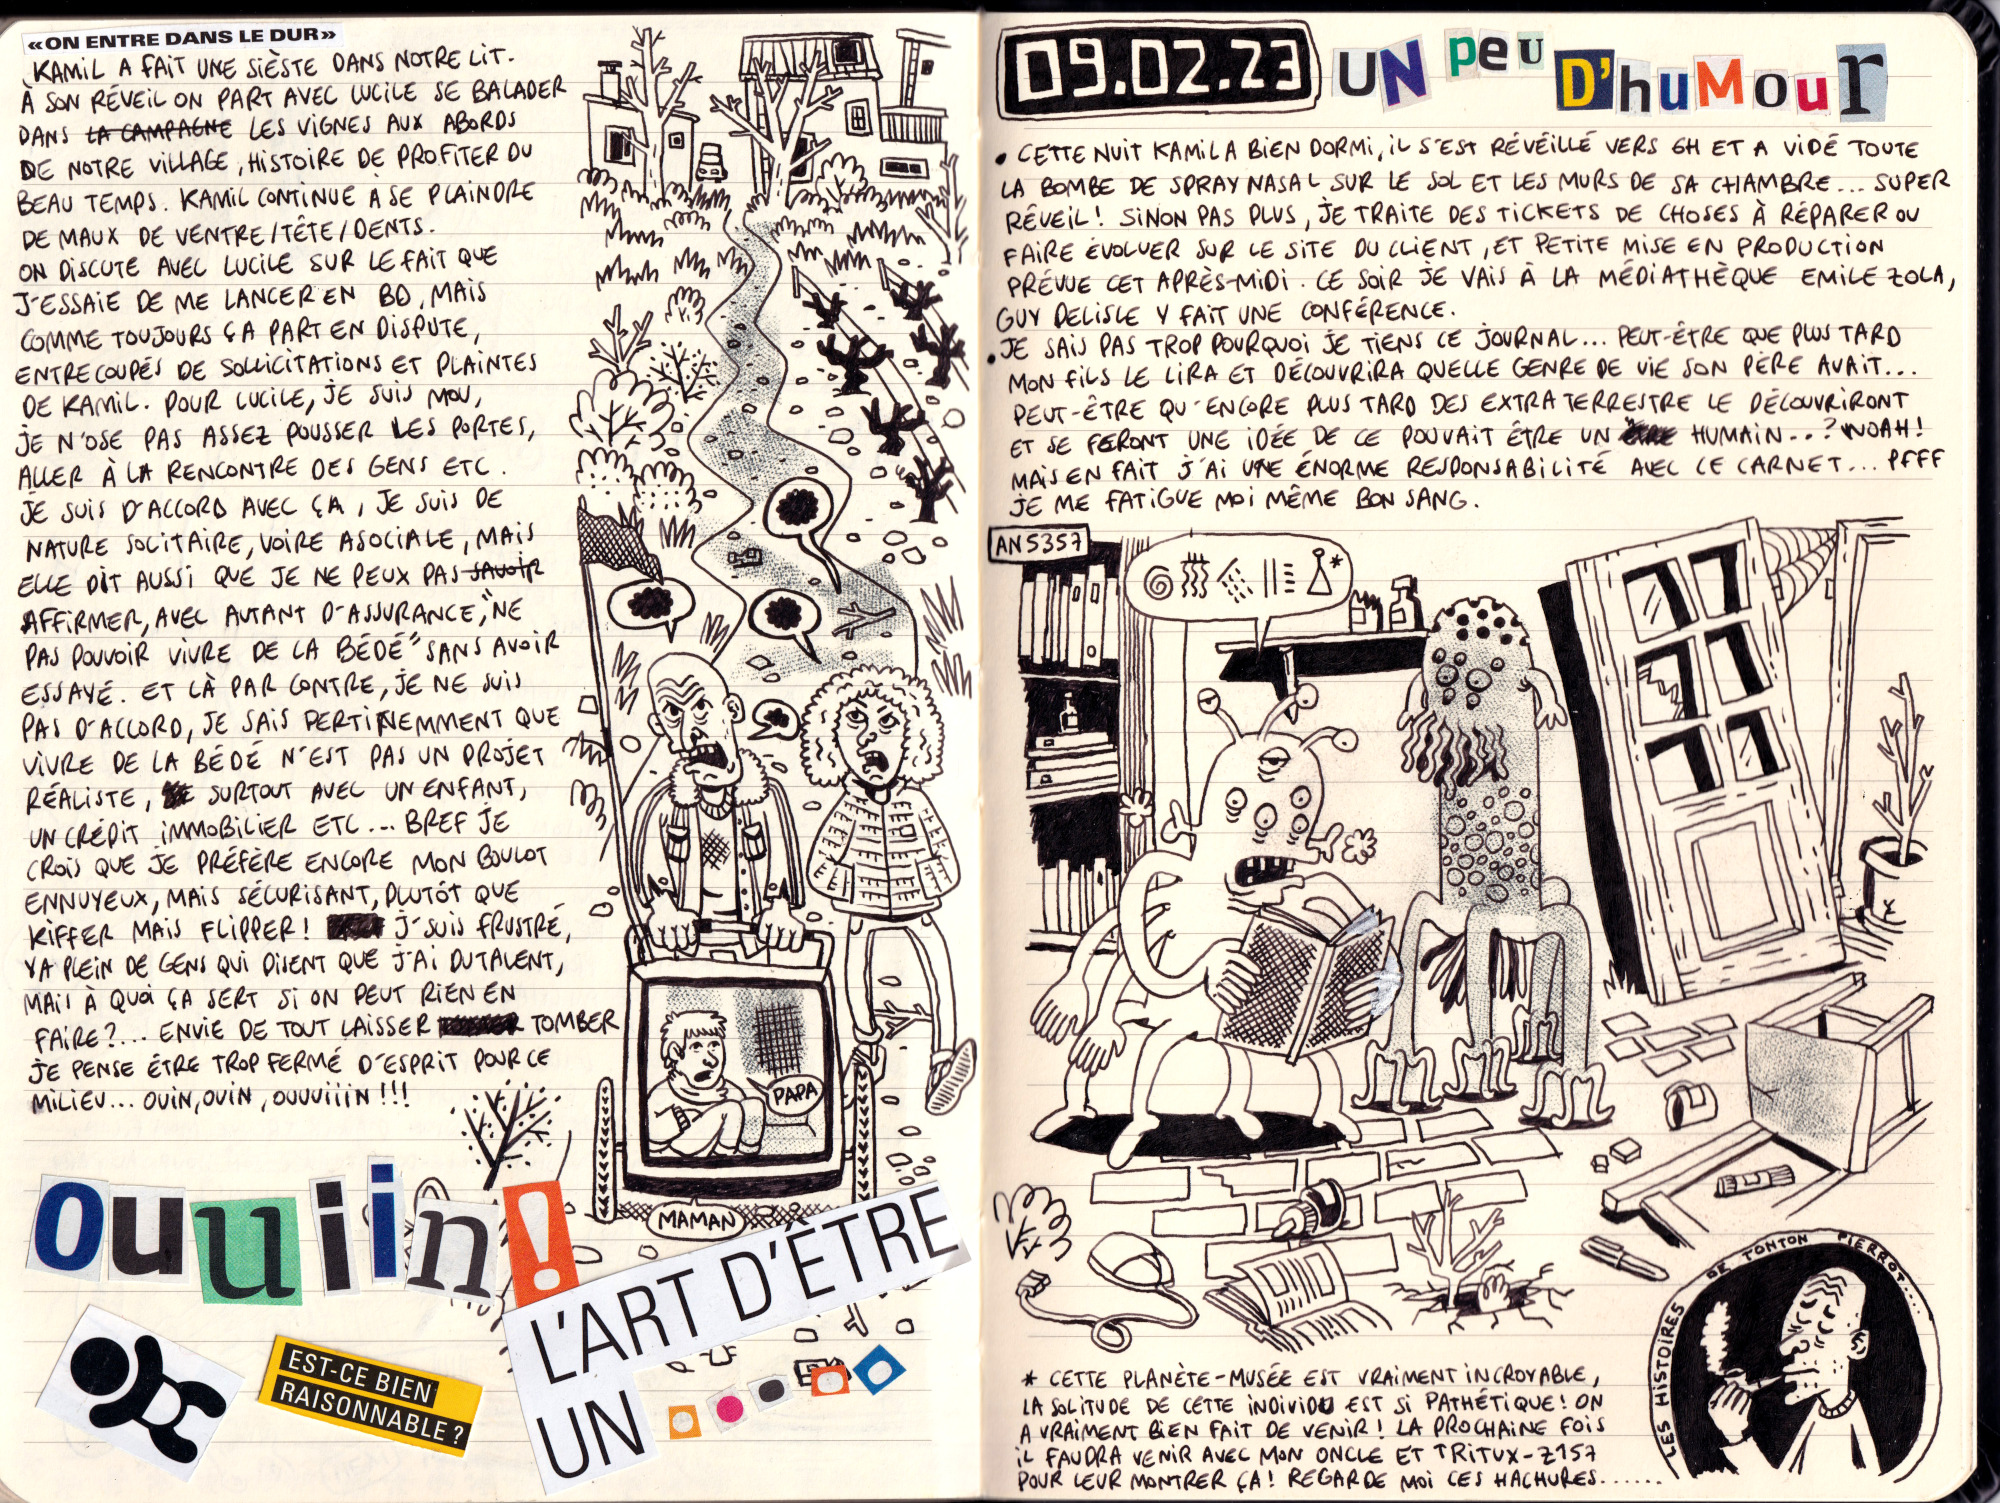 «ON ENTRE DANS LE DUR»
KAMIL A FAIT UNE SIÈSTE DANS NOTRE LIT.
À SON RÉVEIL ON PART AVEC LUCILE SE BALADER
DANS LA CAMPAGNE LES VIGNES AUX ABORDS
DE NOTRE VILLAGE, HISTOIRE DE PROFITER DU
BEAU TEMPS. KAMIL CONTINUE À SE PLAINDRE
DE MAUX DE VENTRE/TÊTE/DENTS.
ON DISCUTE AVEC LUCILE SUR LE FAIT QUE
J'ESSAIE DE ME LANCER EN BD, MAIS
COMME TOUJOURS ÇA PART EN DISPUTE,
ENTRECOUPÉS DE SOLLICITATIONS ET PLAINTES
DE KAMIL. POUR LUCILE, JE SUIS MOU,
JE N'OSE PAS ASSEZ POUSSER LES PORTES,
ALLER À LA RENCONTRE DES GENS ETC.
JE SUIS D'ACCORD AVEC ÇA, JE SUIS DE
NATURE SOLITAIRE, VOIRE ASOCIALE, MAIS
ELLE DIT AUSSI QUE JE NE PEUX PAS SAVOIR
AFFIRMER, AVEC AUTANT D'ASSURANCE, "NE
PAS POUVOIR VIVRE DE LA BÉDÉ" SANS AVOIR
ESSAYÉ. ET LÀ PAR CONTRE, JE NE SUIS
PAS D'ACCORD, JE SAIS PERTINEMMENT QUE
VIVRE DE LA BÉDÉ N'EST PAS UN PROJET
RÉALISTE, SURTOUT AVEC UN ENFANT,
UN CRÉDIT IMMOBILIER ETC... BREF JE
CROIS QUE JE PRÉFÈRE ENCORE MON BOULOT
ENNUYEUX, MAIS SÉCURISANT, PLUTÔT QUE
KIFFER MAIS FLIPPER! J'SUIS FRUSTRÉ,
YA PLEIN DE GENS QUI DISENT QUE J'AI DU TALENT,
MAIS À QUOI ÇA SERT SI ON PEUT RIEN EN
FAIRE?... ENVIE DE TOUT LAISSER TOMBER
JE PENSE ÊTRE TROP FERMÉ D'ESPRIT POUR CE
MILIEU... OUIN, OUIN, OUUUIIIN!!!
PAPA
MAMAN
OUUiin!
EST-CE BIEN
RAISONNABLE?
L'ART D'ÊTRE
UN
09.02.23
UN peu D'huMour
• CETTE NUIT KAMIL A BIEN DORMI, IL S'EST RÉVEILLÉ VERS 6H ET A VIDÉ TOUTE
LA BOMBE DE SPRAY NASAL SUR LE SOL ET LES MURS DE SA CHAMBRE... SUPER
RÉVEIL! SINON PAS PLUS, JE TRAITE DES TICKETS DE CHOSES À RÉPARER OU
FAIRE ÉVOLUER SUR LE SITE DU CLIENT, ET PETITE MISE EN PRODUCTION
PRÉVUE CET APRÈS-MIDI. CE SOIR JE VAIS À LA MÉDIATHÈQUE EMILE ZOLA,
GUY DELISLE Y FAIT UNE CONFÉRENCE.
• JE SAIS PAS TROP POURQUOI JE TIENS CE JOURNAL... PEUT-ÊTRE QUE PLUS TARD
MON FILS LE LIRA ET DÉCOUVRIRA QUELLE GENRE DE VIE SON PÈRE AVAIT...
PEUT-ÊTRE QU'ENCORE PLUS TARD DES EXTRATERRESTRE LE DÉCOUVRIRONT
ET SE FERONT UNE IDÉE DE CE POUVAIT ÊTRE UN HUMAIN...? WOAH!
MAIS EN FAIT J'AI UNE ÉNORME RESPONSABILITÉ AVEC CE CARNET... PFFF
JE ME FATIGUE MOI MÊME BON SANG.
AN 5357
*
* CETTE PLANÈTE-MUSÉE EST VRAIMENT INCROYABLE,
LA SOLITUDE DE CETTE INDIVIDU EST SI PATHÉTIQUE! ON
A VRAIMENT BIEN FAIT DE VENIR! LA PROCHAINE FOIS
IL FAUDRA VENIR AVEC MON ONCLE ET TRITUX-Z157
POUR LEUR MONTRER ÇA! REGARDE MOI CES HACHURES......
LES HISTOIRES DE TONTON PIERROT.....